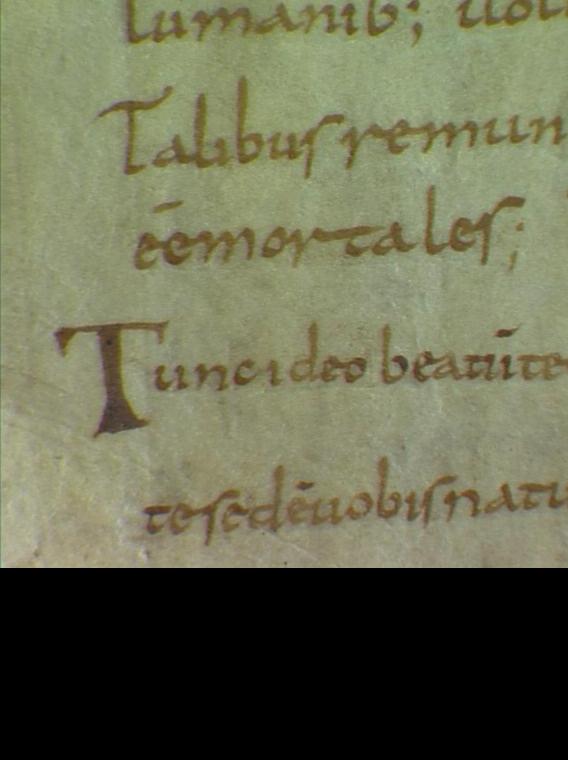 lumanib;
Talibus remun
ēemortales;
Tunc ideo beatū te
te sed ē uobis natu